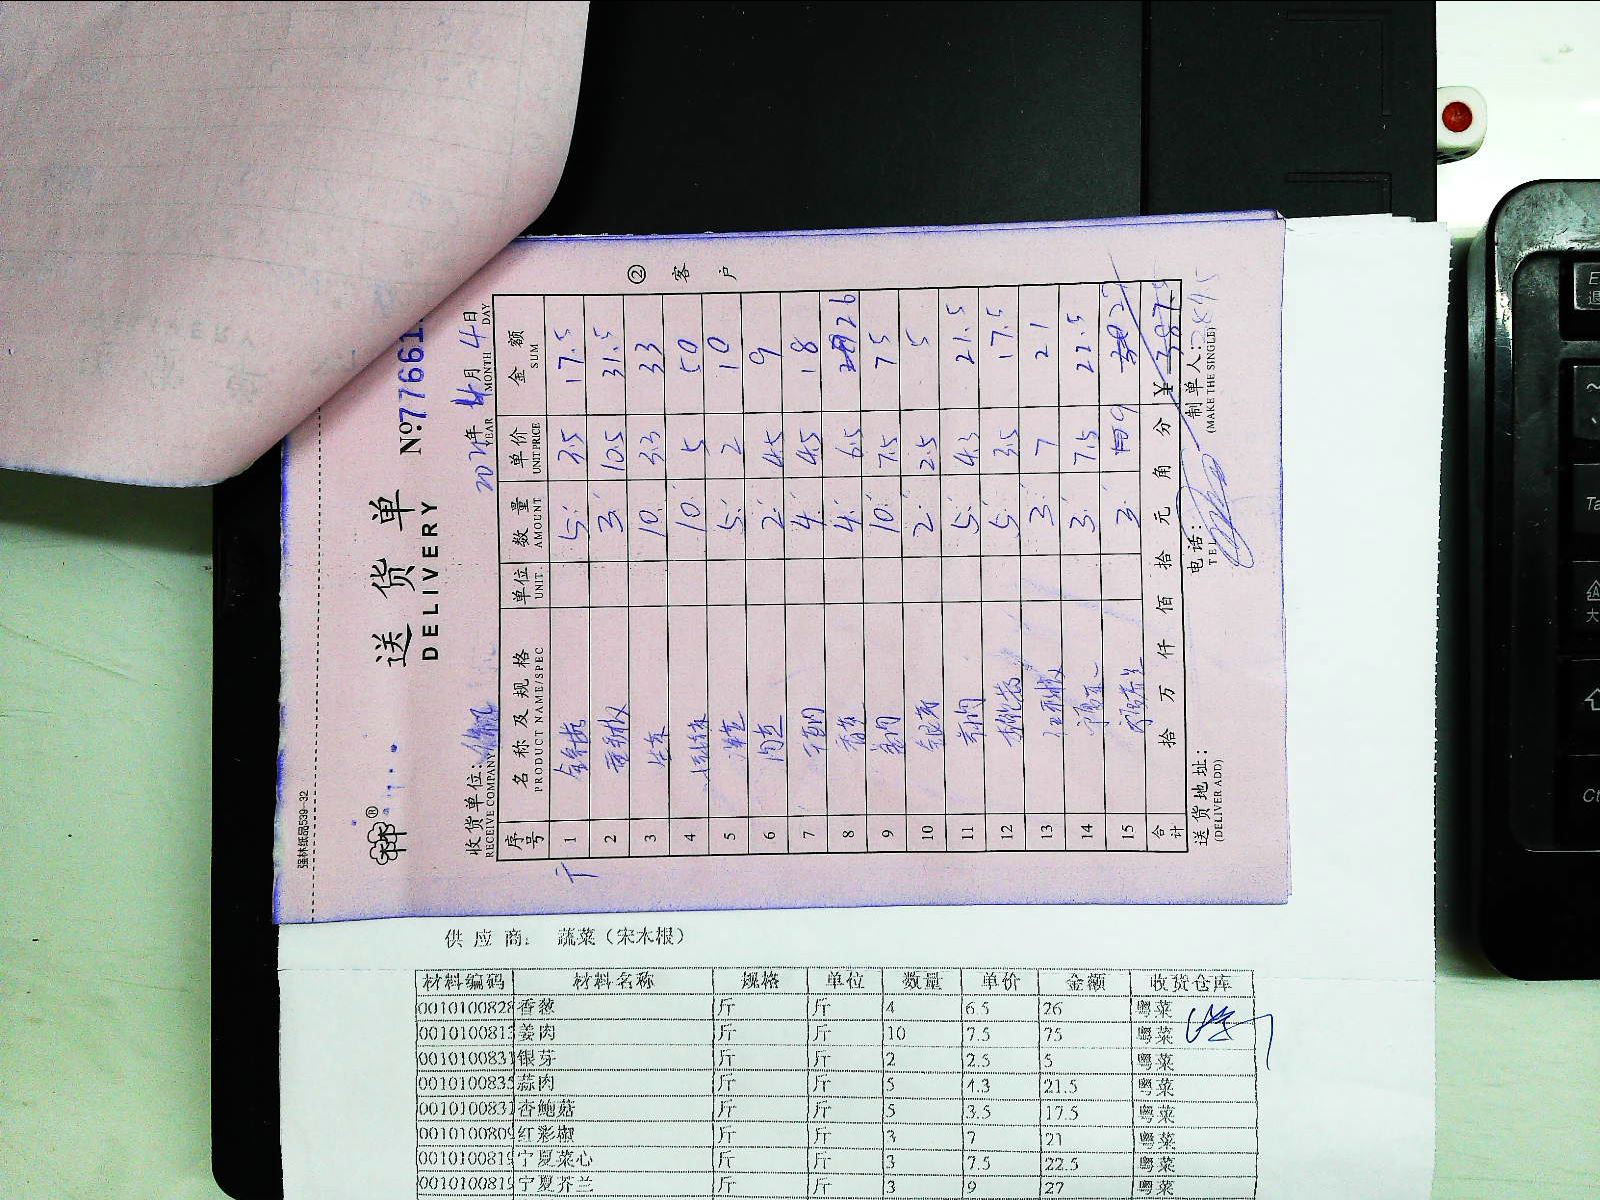 强林纸品539-32
送货单
DELIVERY
No 77661
收货单位:
RECEIVE COMPANY
2021年 4月 4日
YEAR MONTH DAY
② 客户
序号 名称及规格 单位 数量 单价 金额
PRODUCT NAME/SPEC UNIT. AMOUNT UNIT PRICE SUM
斤
1 5 3.5 17.5
2 3 10.5 31.5
3 10 3.3 33
4 10 5 50
5 5 2 10
6 2 4.5 9
7 4 4.5 18
8 香葱 4 6.5 26
9 姜肉 10 7.5 75
10 银芽 2 2.5 5
11 蒜肉 5 4.3 21.5
12 5 3.5 17.5
13 红彩椒 3 7 21
14 3 7.5 22.5
15 3 9 27
合计 拾 万 仟 佰 拾 元 角 分 ¥
送货地址: 电话: 制单人:
(DELIVER ADD) TEL (MAKE THE SINGLE)
供应商: 蔬菜(宋木根)
材料编码 材料名称 规格 单位 数量 单价 金额 收货仓库
0010100828 香葱 斤 斤 4 6.5 26 粤菜
001010081 姜肉 斤 斤 10 7.5 75 粤菜
001010083 银芽 斤 斤 2 2.5 5 粤菜
0010100835 蒜肉 斤 斤 5 4.3 21.5 粤菜
001010083 杏鲍菇 斤 斤 5 3.5 17.5 粤菜
0010100809 红彩椒 斤 斤 3 7 21 粤菜
001010081 宁夏菜心 斤 斤 3 7.5 22.5 粤菜
001010081 宁夏芥兰 斤 斤 3 9 27 粤菜